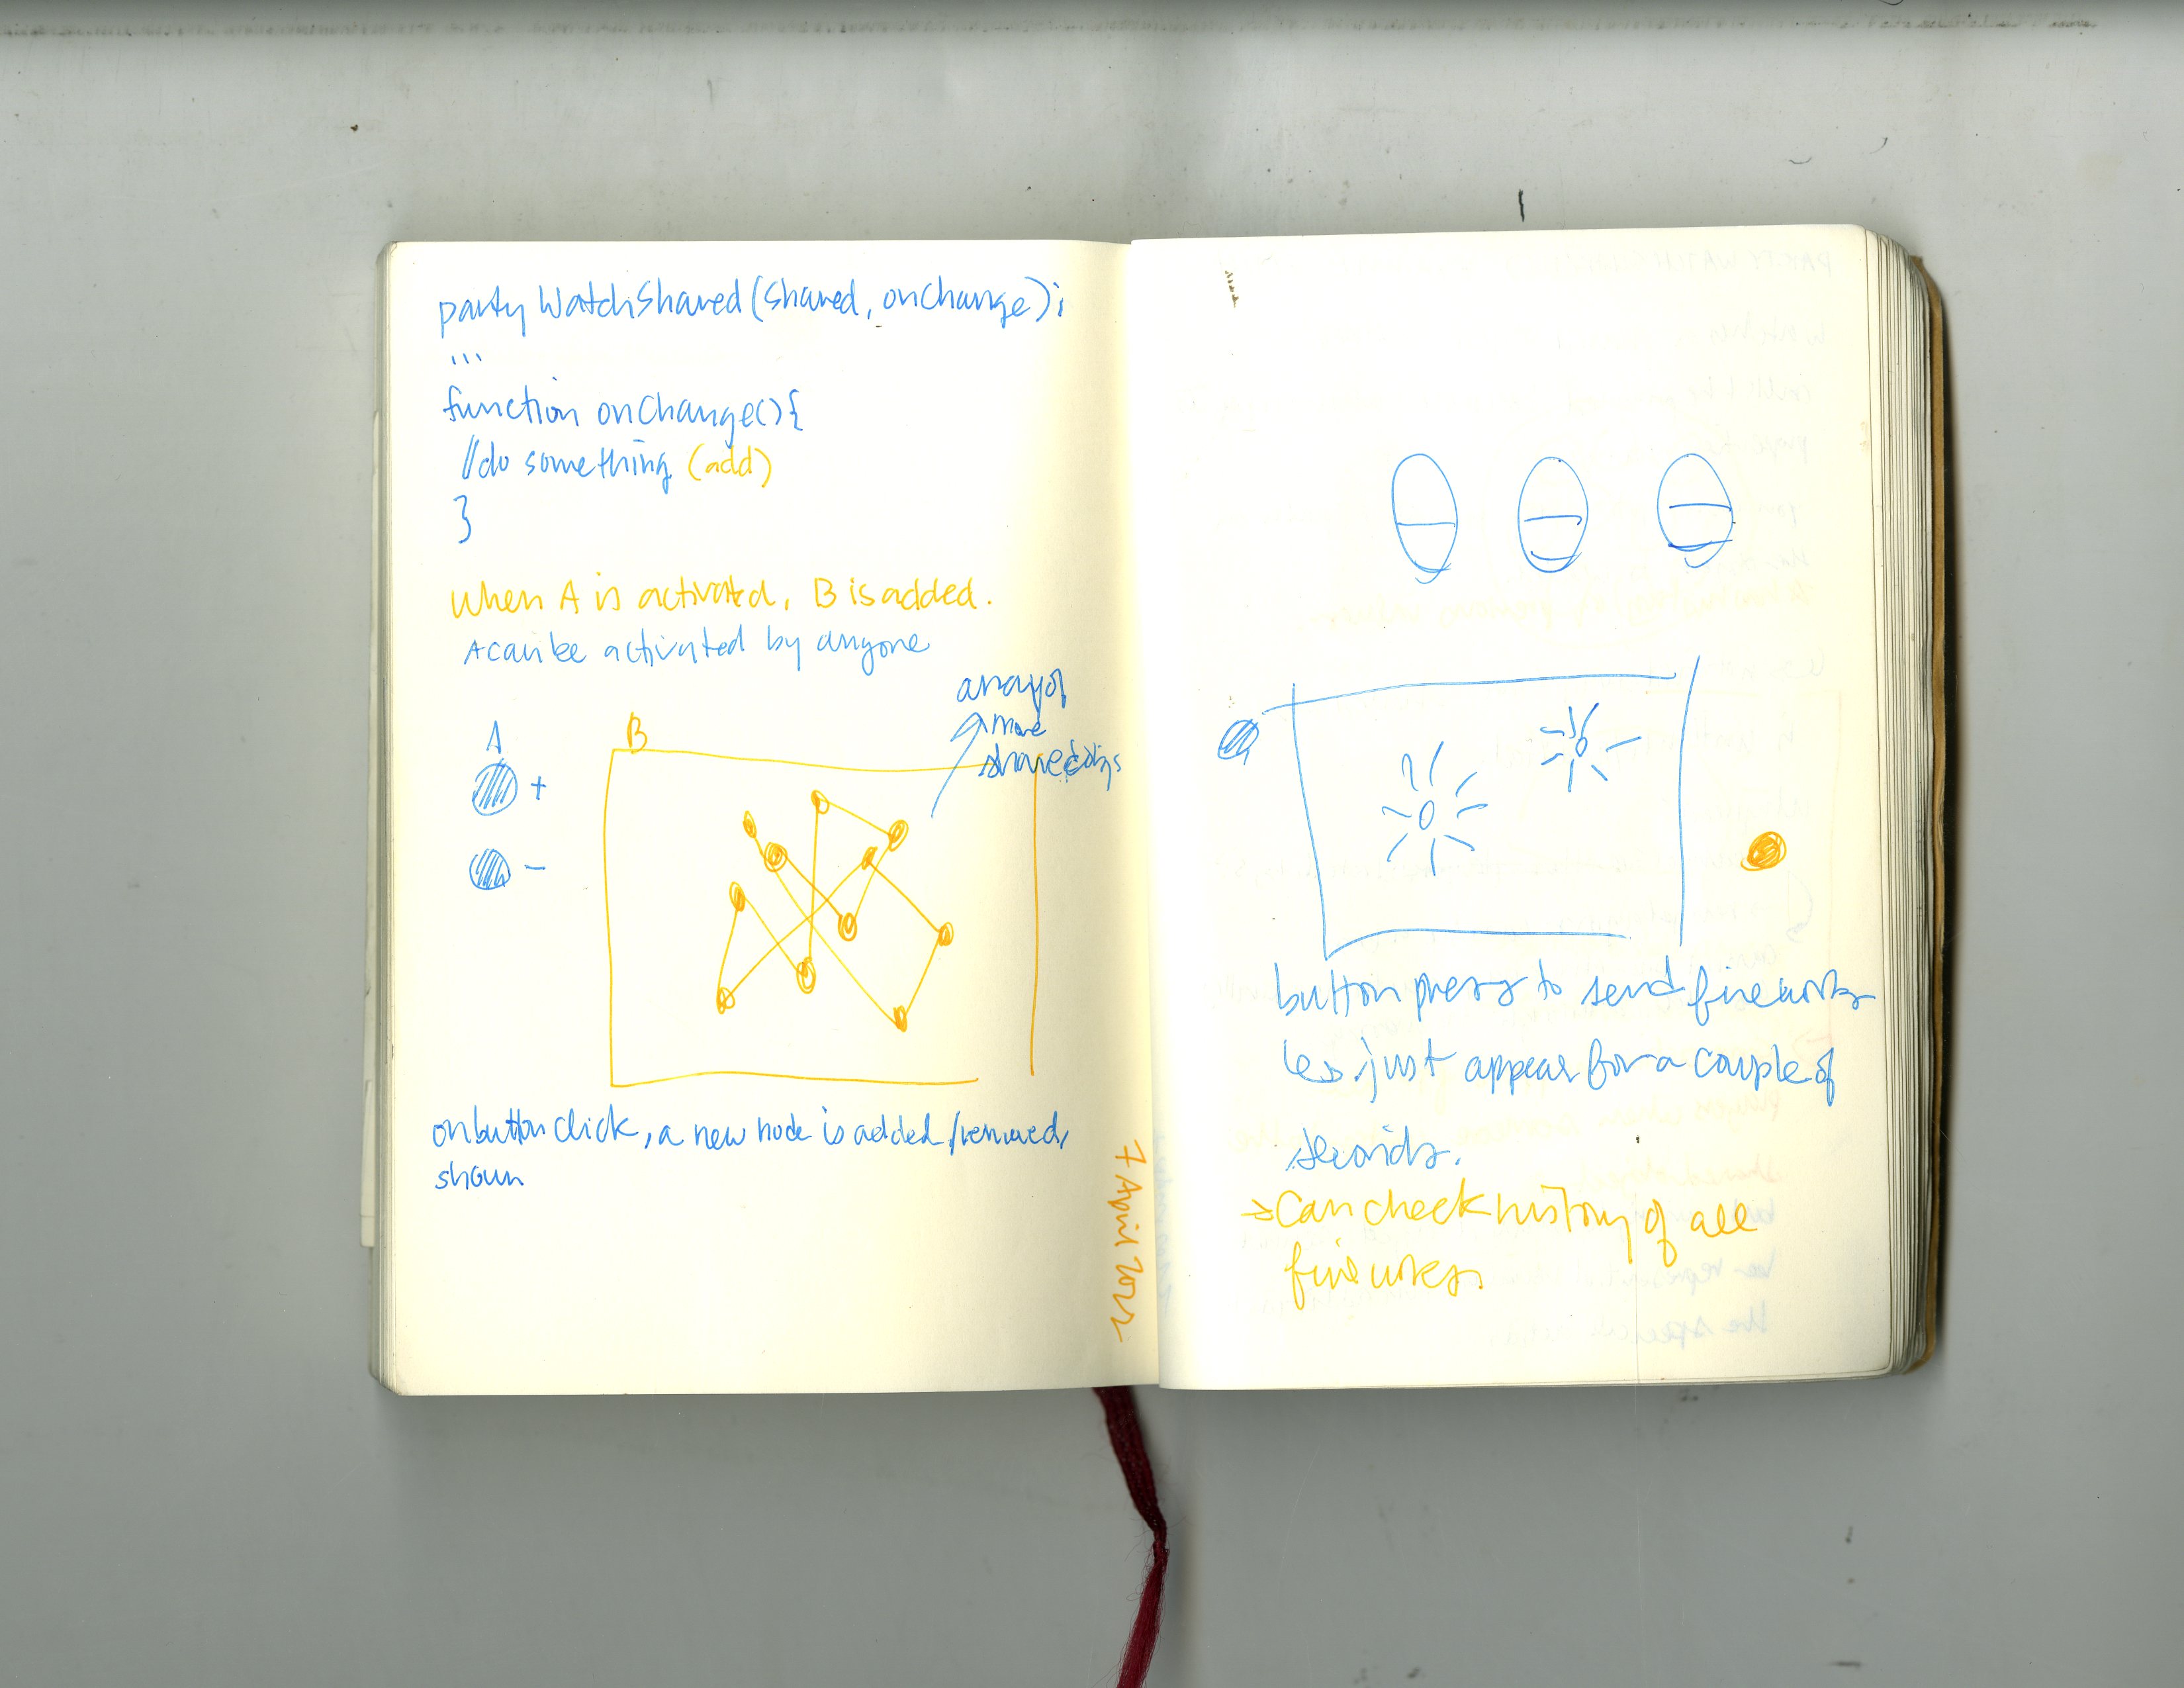 partyWatchShared(shared, onChange);
...
function onChange(){
//do something (add)
}
When A is activated, B is added.
A can be activated by anyone
array of
more
shared objs
A
B
+
-
on button click, a new node is added/removed,
shown
7 April 2022
button press to send fireworks
↳ just appear for a couple of
seconds.
→ Can check history of all
fireworks.